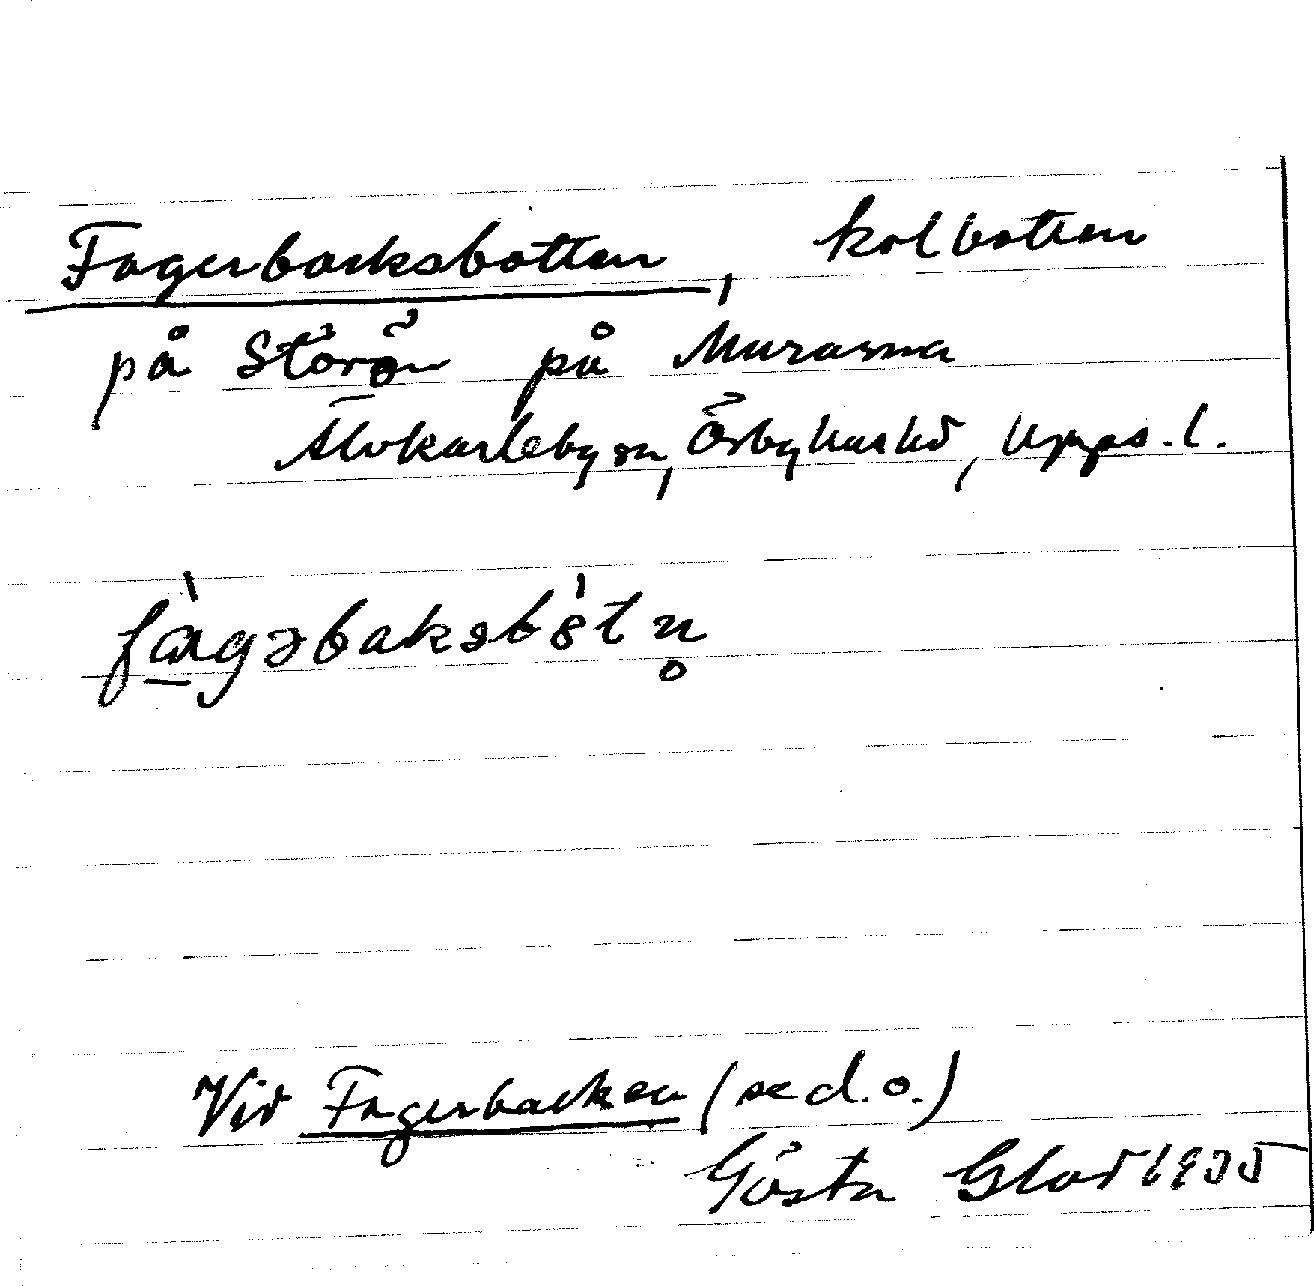 Fagerbacksbotten, kolbotten
på Storön på Murarna
Älvkarleby sn, Örbyhus hd, Upps. l.
fàgəbaksbòtn̥
Vid Fagerbacken (se d. o.)
Gösta Glad 1935